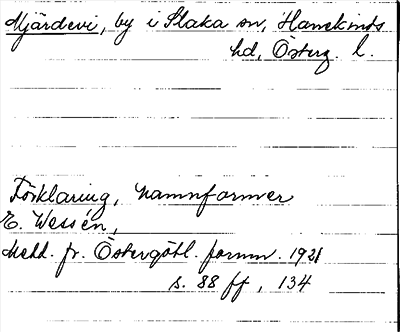 Mjärdevi, by i Slaka sn, Hanekinds
hd, Österg. l.
Förklaring, namnformer
E. Wessén,
Medd. fr. Östergötl. fornm. 1921
s. 88 ff, 134